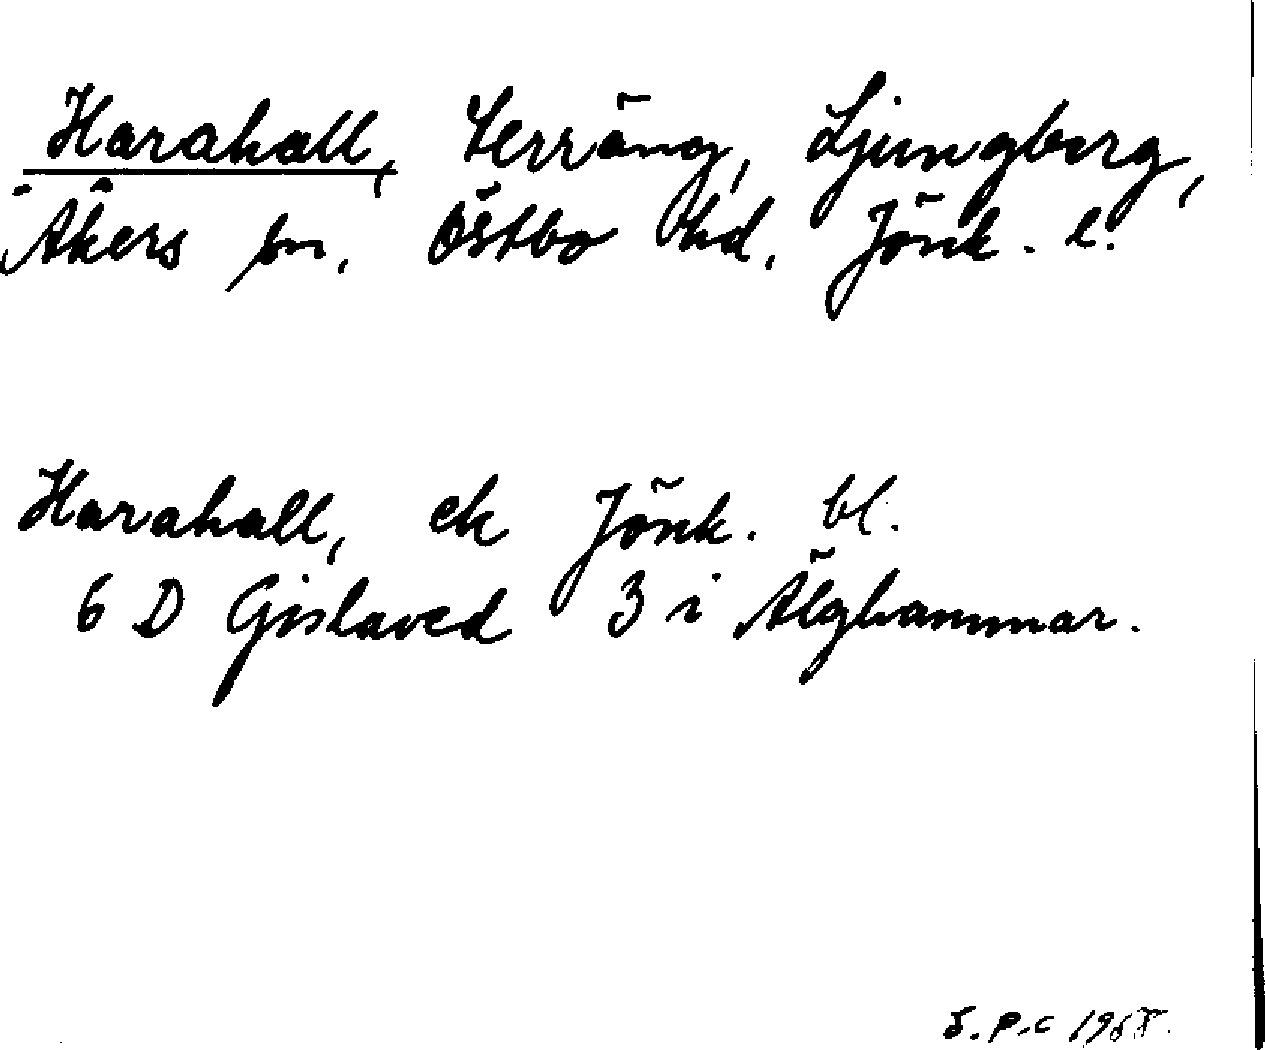 Harahall, terräng, Ljungberg,
Åkers sn, Östbo hd, Jönk. l.
Harahall, ek Jönk. bl.
6 D Gislaved 3 i Älghammar.
S.P.C 1968.